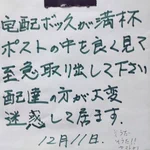 宅配ボックスが満杯
ポストの中を良く見て
至急取り出して下さい
配達の方が大変
迷惑して居ます.
12月11日.